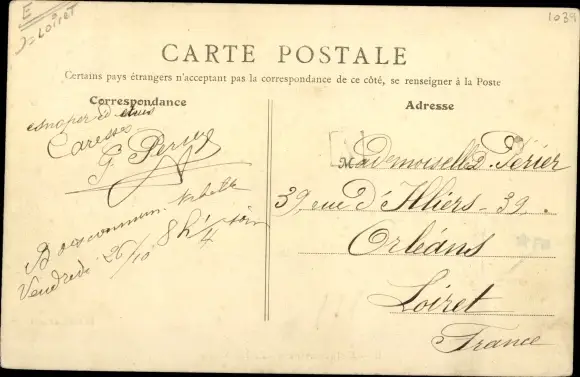 E
Loiret
1039
CARTE POSTALE
Certains pays étrangers n'acceptant pas la correspondance de ce côté, se renseigner à la Poste
Correspondance
Caresses
G. Perier
Vendredi 26/10 8h 1/4 soir
Adresse
Mademoiselle D. Périer
39 rue d'Illiers - 39.
Orléans
Loiret
France